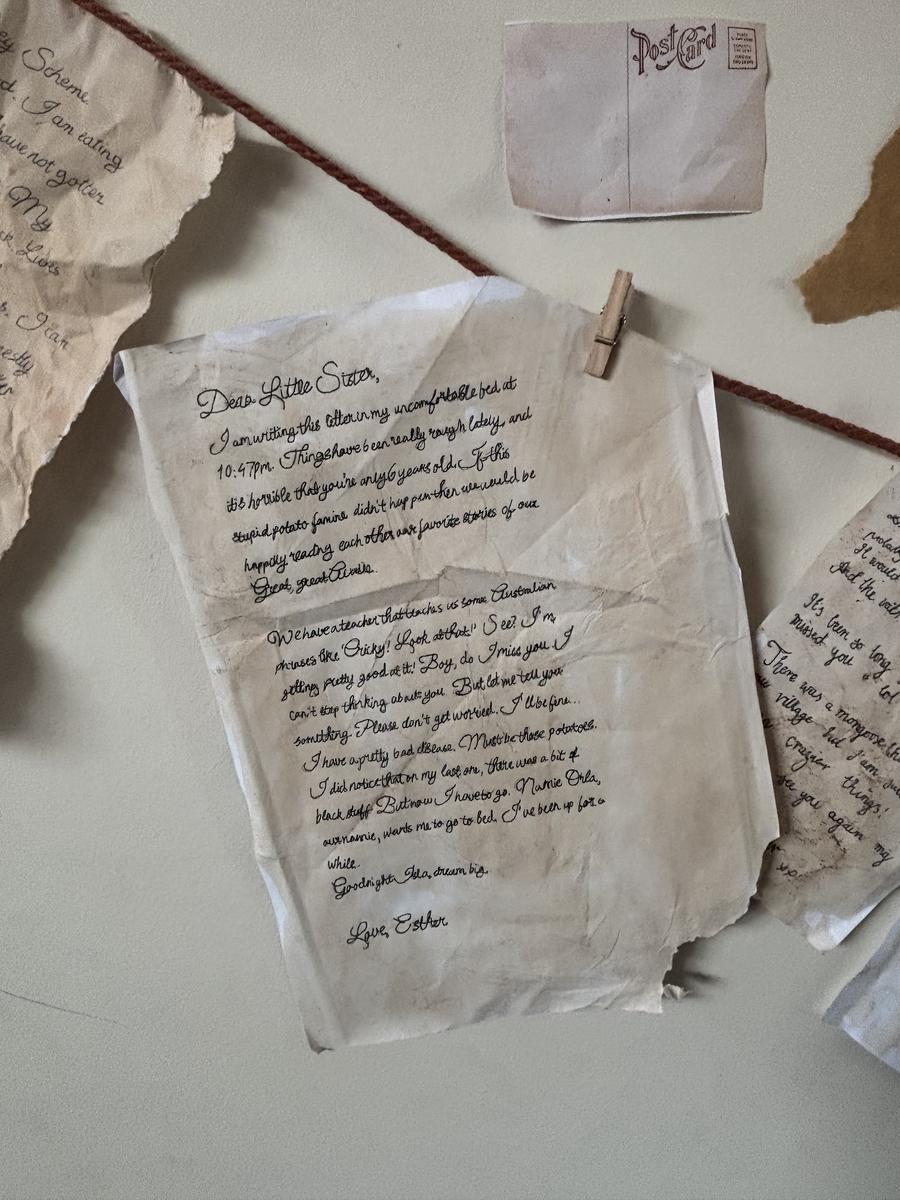 ey Scheme
d. I am eating
have not gotten
My
ck Lives
s. I can
nestly
Post Card
Dear Little Sister,
I am writing this letter in my uncomfortable bed at
10:47pm. Things have been really rough lately, and
it's horrible that you're only 6 years old. If this
stupid potato famine didn't happen then we would be
happily reading each other our favorite stories of our
Great, great Aunts.
We have a teacher that teaches us some Australian
phrases like 'Cricky! Look at that!' See? I'm
getting pretty good at it! Boy, do I miss you. I
can't stop thinking about you. But let me tell you
something. Please don't get worried. I'll be fine...
I have a pretty bad disease. Must be those potatoes.
I did notice that on my last one, there was a bit of
black stuff. But now I have to go. Narnie Orla,
our nannie, wants me to go to bed. I've been up for a
while.
Goodnight Isla, dream big.
Love, Esther
It would
And the
It's been so long
missed you a lot
There was a mongoose
village but I am
crazier things!
see you again my
xx